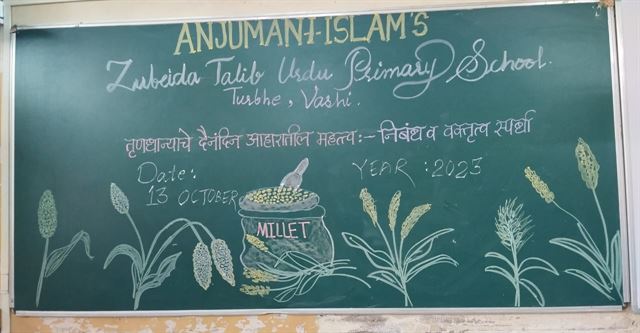 ANJUMAN-I-ISLAM'S
Zubeida Talib Urdu Primary School.
Turbhe, Vashi.
तृणधान्याचे दैनंदिन आहारातील महत्त्व :- निबंध व वक्तृत्व स्पर्धा
Date: YEAR : 2023
13 OCTOBER
MILLET